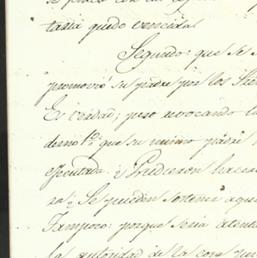 se
tada quedó vencida.
Segundo: que se
promovió su padre por los
Es verdad; pero revocando la
dem.o 1.o que su mismo padre
ejecutada. ¿Pudieron hacer
sa? ¿Se pueden sostener aque
Tampoco: porque seria atenta
la autoridad de la cosa juz